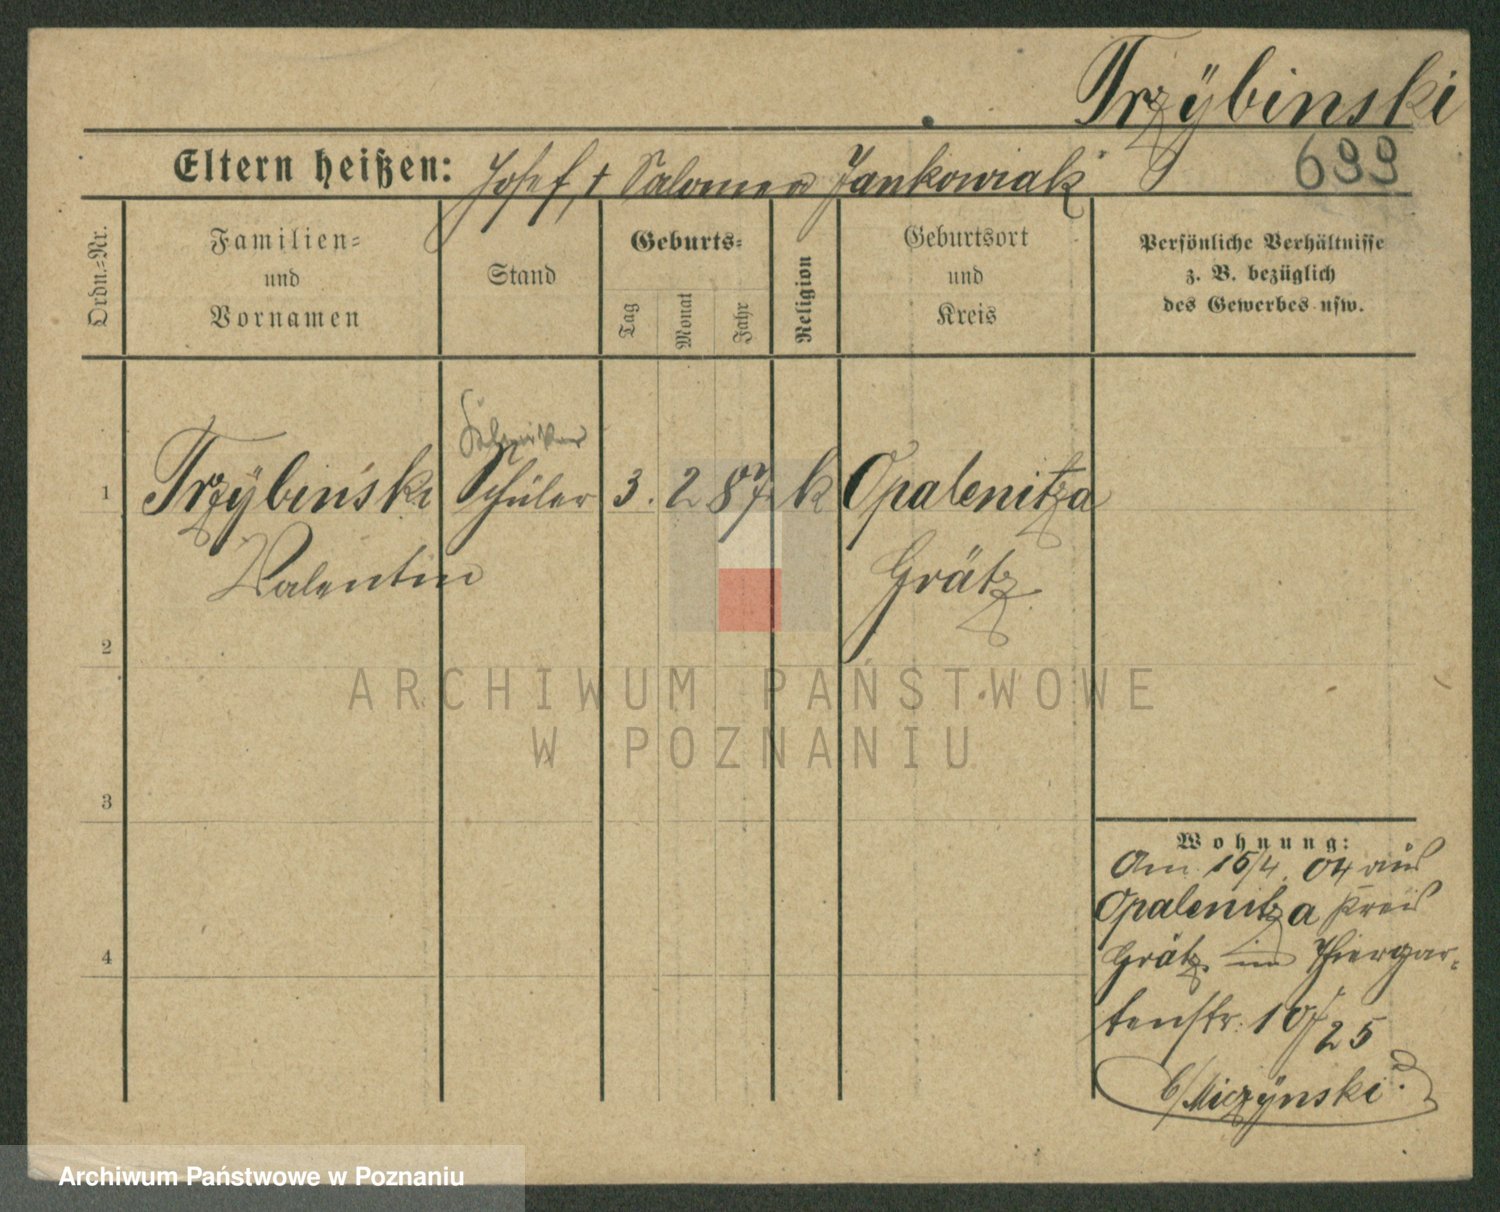 Trzÿbinski
Eltern heißen: Josef, † Salomea Jankowiak
699
Ordn.-Nr.
Familien-
und
Vornamen
Stand
Geburts-
Tag
Monat
Jahr
Religion
Geburtsort
und
Kreis
Persönliche Verhältnisse
z. B. bezüglich
des Gewerbes usw.
1
Trzÿbiński
Schüler
3. 2 87. k
Opalenitza
Valentin
Grätz
2
ARCHIWUM PAŃSTWOWE
W POZNANIU
3
Wohnung:
Am 15/4. 04 aus
Opalenitza Kreis
Grätz in Thiergar-
4
tenstr. 10/25
b/Miczÿnski.
Archiwum Państwowe w Poznaniu